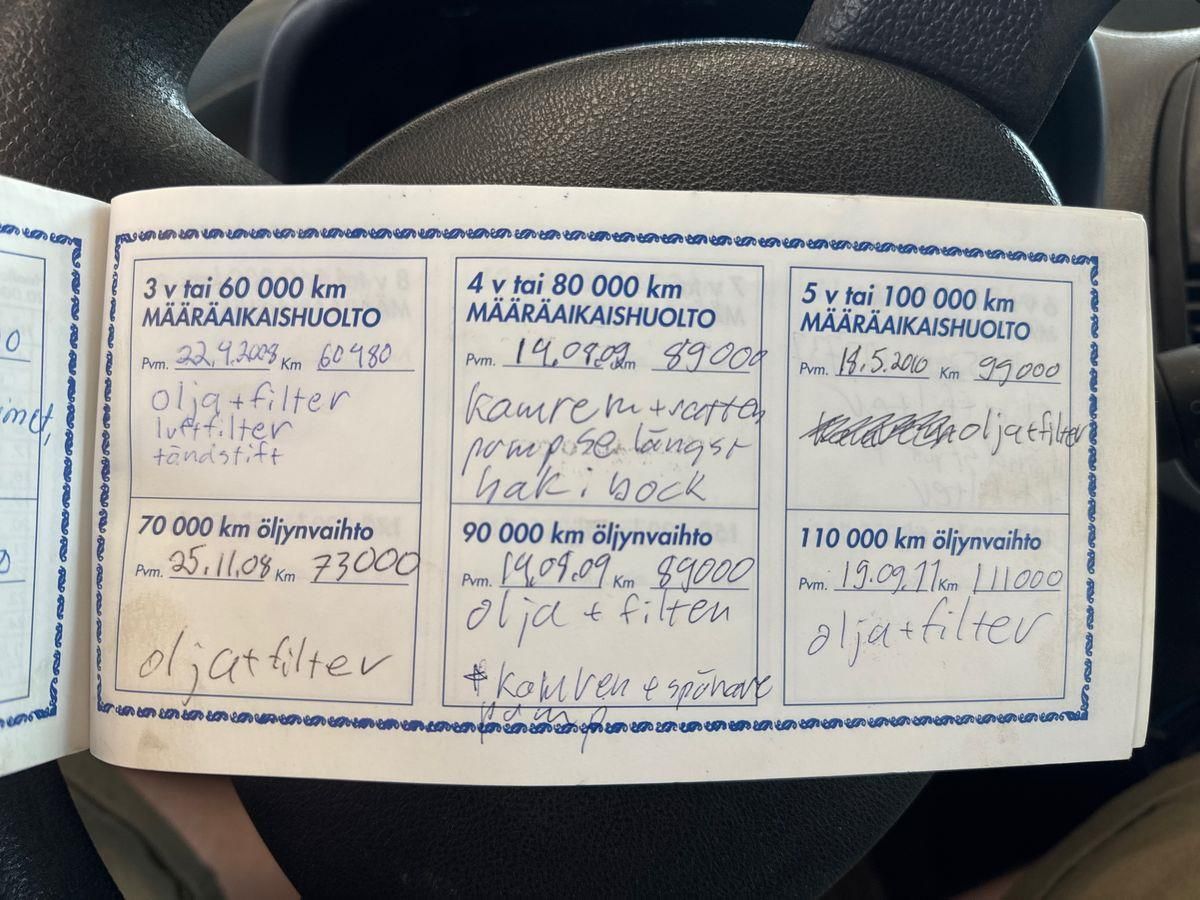 3 v tai 60 000 km
MÄÄRÄAIKAISHUOLTO
Pvm. 22.9.2008 Km 60480
olja + filter
luftfilter
tändstift
70 000 km öljynvaihto
Pvm. 25.11.08 Km 73000
olja + filter
4 v tai 80 000 km
MÄÄRÄAIKAISHUOLTO
Pvm. 19.08.09 Km 89000
kamrem + vatten
pump se längst
bak i bock
90 000 km öljynvaihto
Pvm. 19.09.09 Km 89000
olja + filter
+ kamrem + spännare
pump
5 v tai 100 000 km
MÄÄRÄAIKAISHUOLTO
Pvm. 18.5.2010 Km 99000
olja + filter
110 000 km öljynvaihto
Pvm. 19.09.11 Km 111000
olja + filter